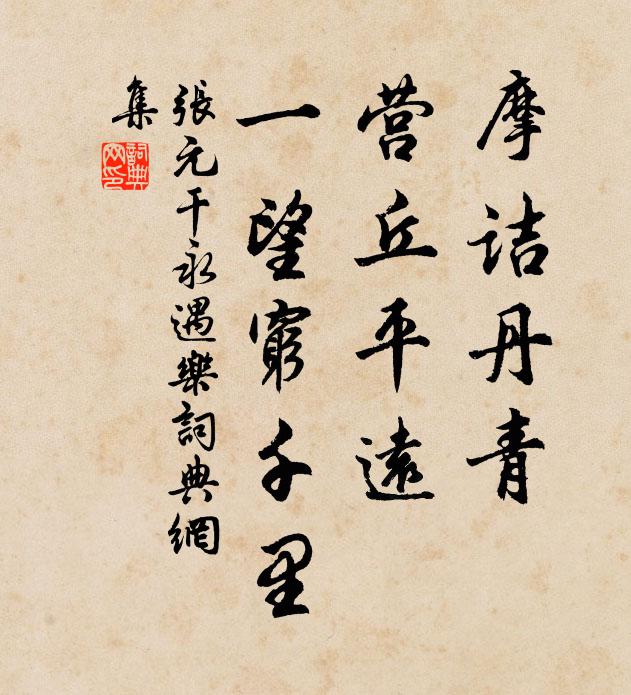 摩詰丹青
营丘平遠
一望窮千里
張元干永遇樂詞典網
集
詞典
网印